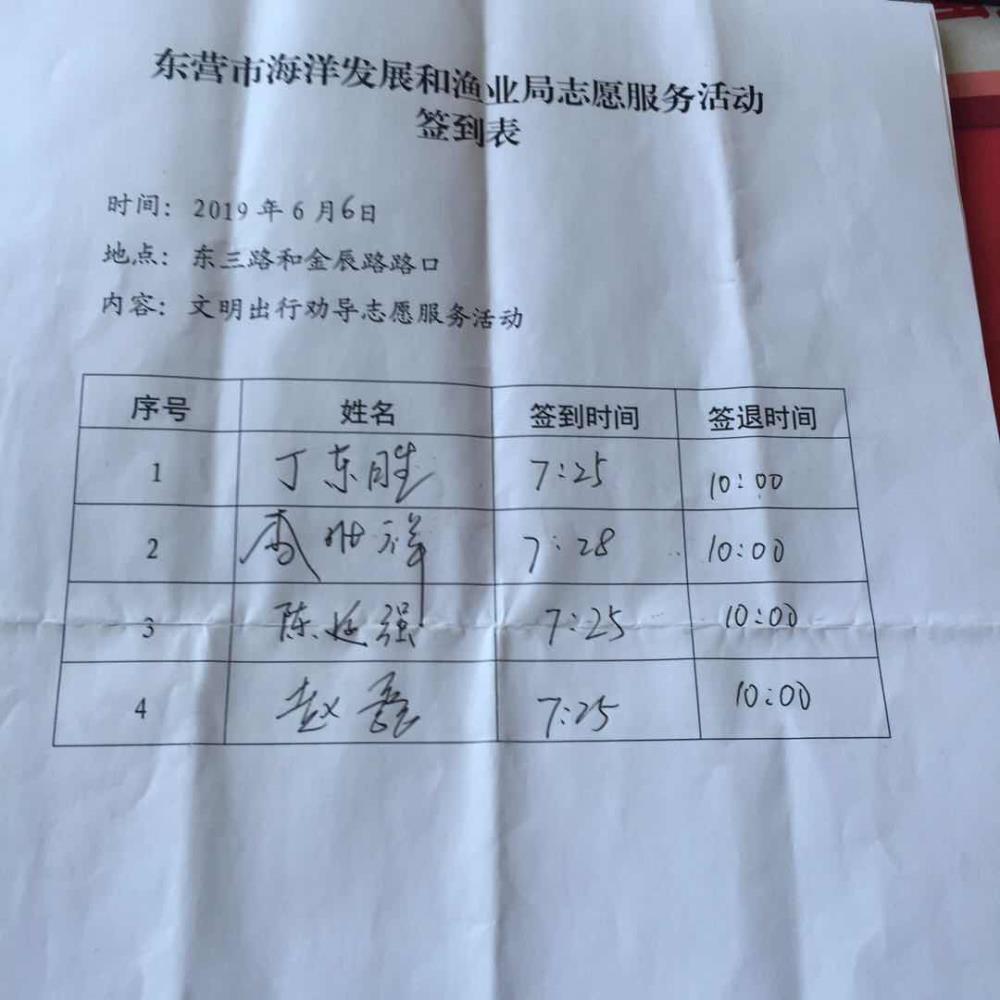 东营市海洋发展和渔业局志愿服务活动
签到表
时间：2019年6月6日
地点：东三路和金辰路路口
内容：文明出行劝导志愿服务活动
序号 姓名 签到时间 签退时间
1 丁东胜 7:25 10:00
2 7:28 10:00
3 陈延强 7:25 10:00
4 赵 7:25 10:00